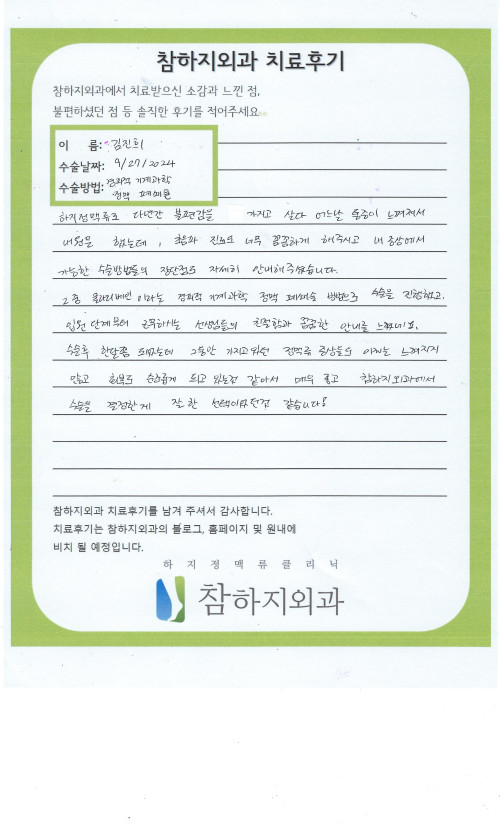 참하지외과 치료후기
참하지외과에서 치료받으신 소감과 느낀 점,
불편하셨던 점 등 솔직한 후기를 적어주세요
이 름: 김진희
수술날짜: 9/27/2024
수술방법: 경피적 기계화학
정맥 폐쇄술
하지정맥류로 다년간 불편감을 가지고 살다 어느날 통증이 느껴져서
내원을 했는데, 초음파 진료도 너무 꼼꼼하게 해주시고 내 증상에서
가능한 수술방법들의 장단점도 자세히 안내해주셨습니다.
그 중 클라리베인 이라는 경피적 기계화학 정맥 폐쇄술 방법으로 수술을 진행했고,
입원 단계부터 근무하시는 선생님들의 친절함과 꼼꼼한 안내를 느꼈네요.
수술후 한달쯤 되었는데 그동안 가지고있던 정맥류 증상들도 이제는 느껴지지
않고 회복도 순조롭게 되고 있는것 같아서 매우 좋고 참하지외과에서
수술을 결정한게 잘 한 선택이었던것 같습니다!
참하지외과 치료후기를 남겨 주셔서 감사합니다.
치료후기는 참하지외과의 블로그, 홈페이지 및 원내에
비치 될 예정입니다.
하지정맥류클리닉
참하지외과